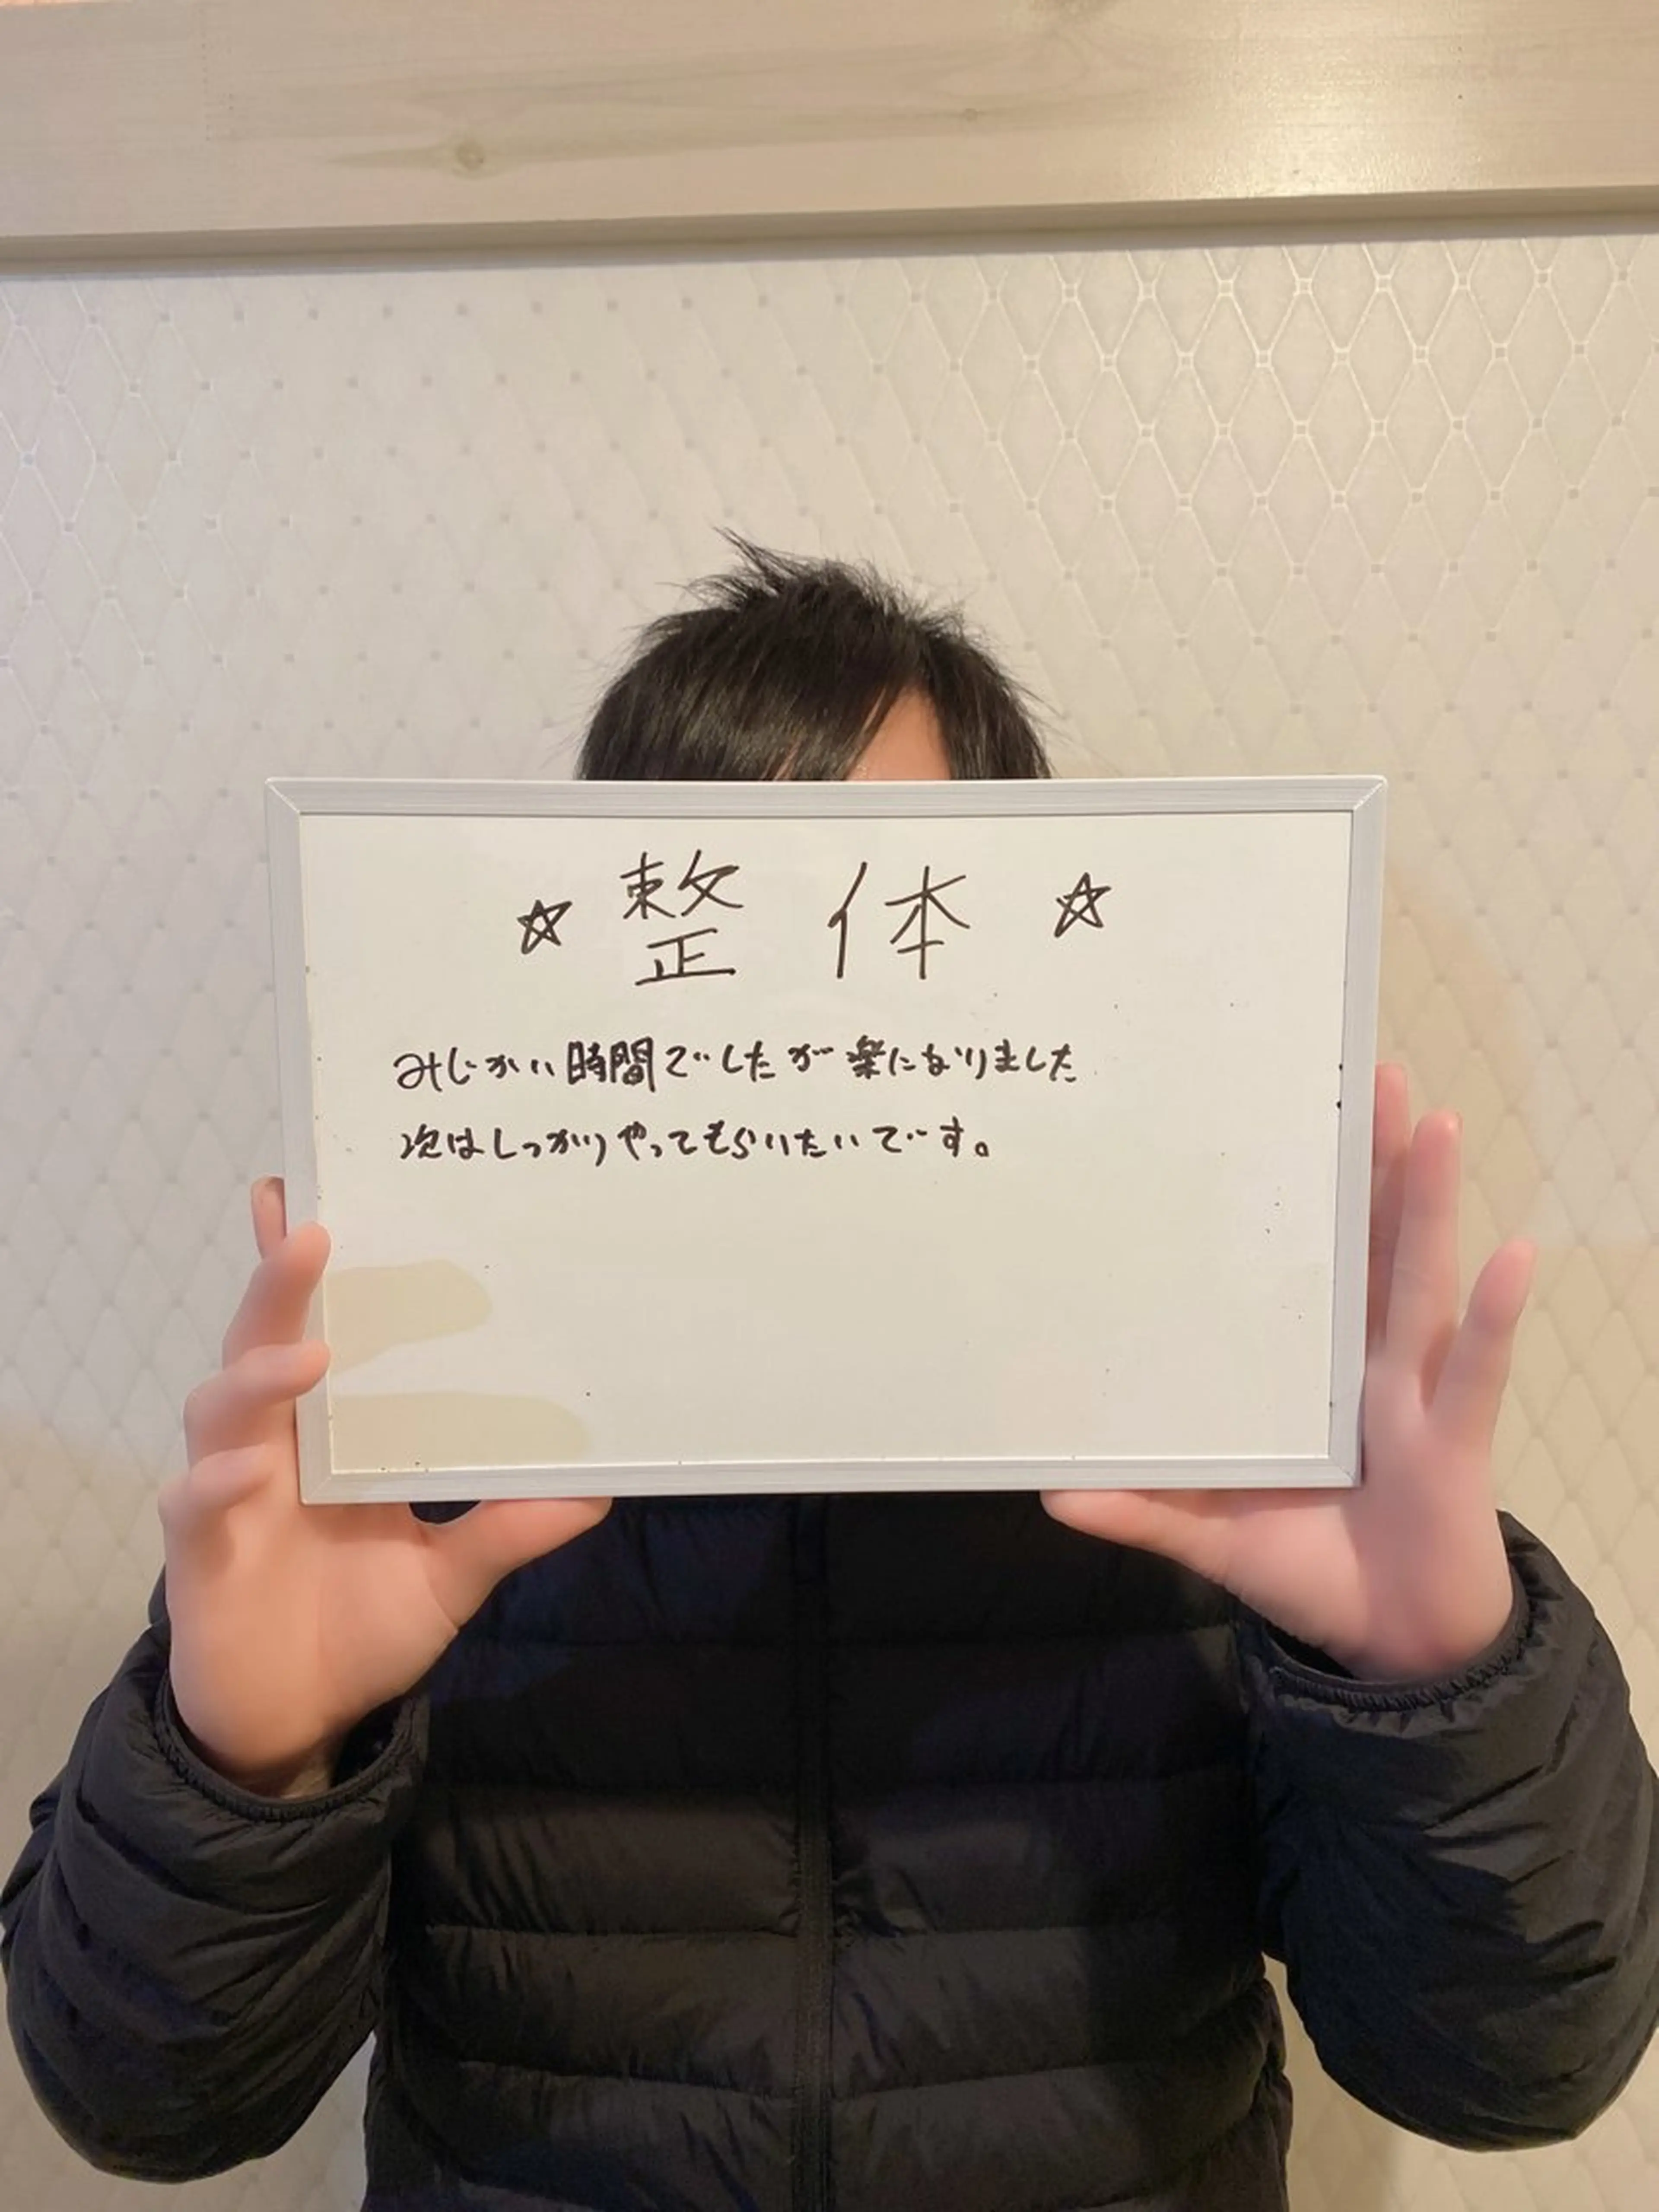 ☆ 整体 ☆
みじかい時間でしたが楽になりました
次はしっかりやってもらいたいです。